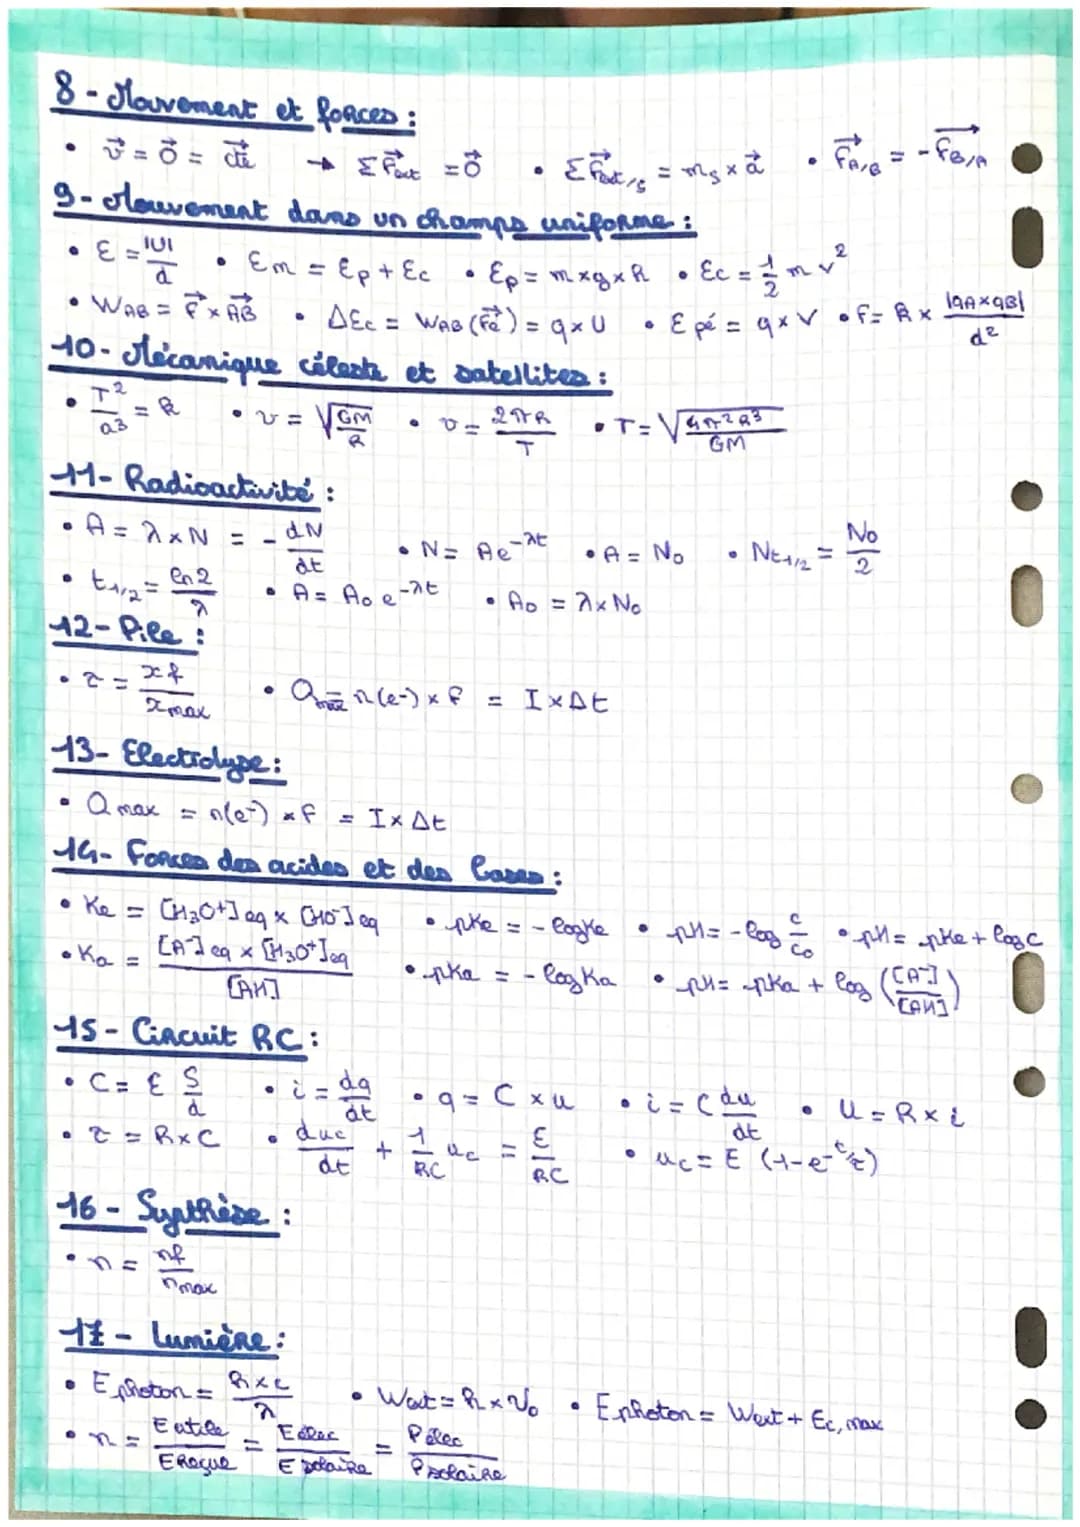 8 - Mouvement et forces :
• v⃗ = 0⃗ = cte⃗ → ΣF⃗ext = 0⃗ • ΣF⃗ext/s = ms × a⃗ • F⃗A/B = - F⃗B/A
9 - Mouvement dans un champs uniforme :
• E = |U|/d • Em = Ep + Ec • Ep = m×g×h • Ec = 1/2 m v²
• WAB = F⃗ × AB⃗ • ΔEc = WAB (Fe⃗) = q × U • E pé = q × V • F = k × |qA×qB|/d²
10 - Mécanique céleste et satellites :
• T²/a³ = k • v = √(GM/R) • v = 2πR/T • T = √(4π²R³/GM)
11 - Radioactivité :
• A = λ × N = - dN/dt • N = Ae^-λt • A = N₀ • Nt1/2 = N₀/2
• t1/2 = ln2/λ • A = A₀ e^-λt • A₀ = λ × N₀
12 - Pile :
• τ = xf/xmax • Qmax = n(e-) × F = I × Δt
13 - Electrolyse :
• Qmax = n(e-) × F = I × Δt
14 - Forces des acides et des bases :
• Ke = [H₃O+]eq × [HO-]eq • pKe = - logKe • pH = - log c/c₀ • pH = pKe + log c
• Ka = [A-]eq × [H₃O+]eq/[AH] • pKa = - logKa • pH = pKa + log ([A-]/[AH])
15 - Circuit RC :
• C = ε S/d • i = dq/dt • q = C × u • i = C du/dt • U = R × i
• τ = R×C • duc/dt + 1/RC uc = E/RC • uc = E (1-e^-t/τ)
16 - Synthèse :
• n = nf/nmax
17 - Lumière :
• Ephoton = h×c/λ • Wext = h × ν₀ • Ephoton = Wext + Ec, max
• n = E utile/E Reçue = E élec/E solaire = P élec/P solaire